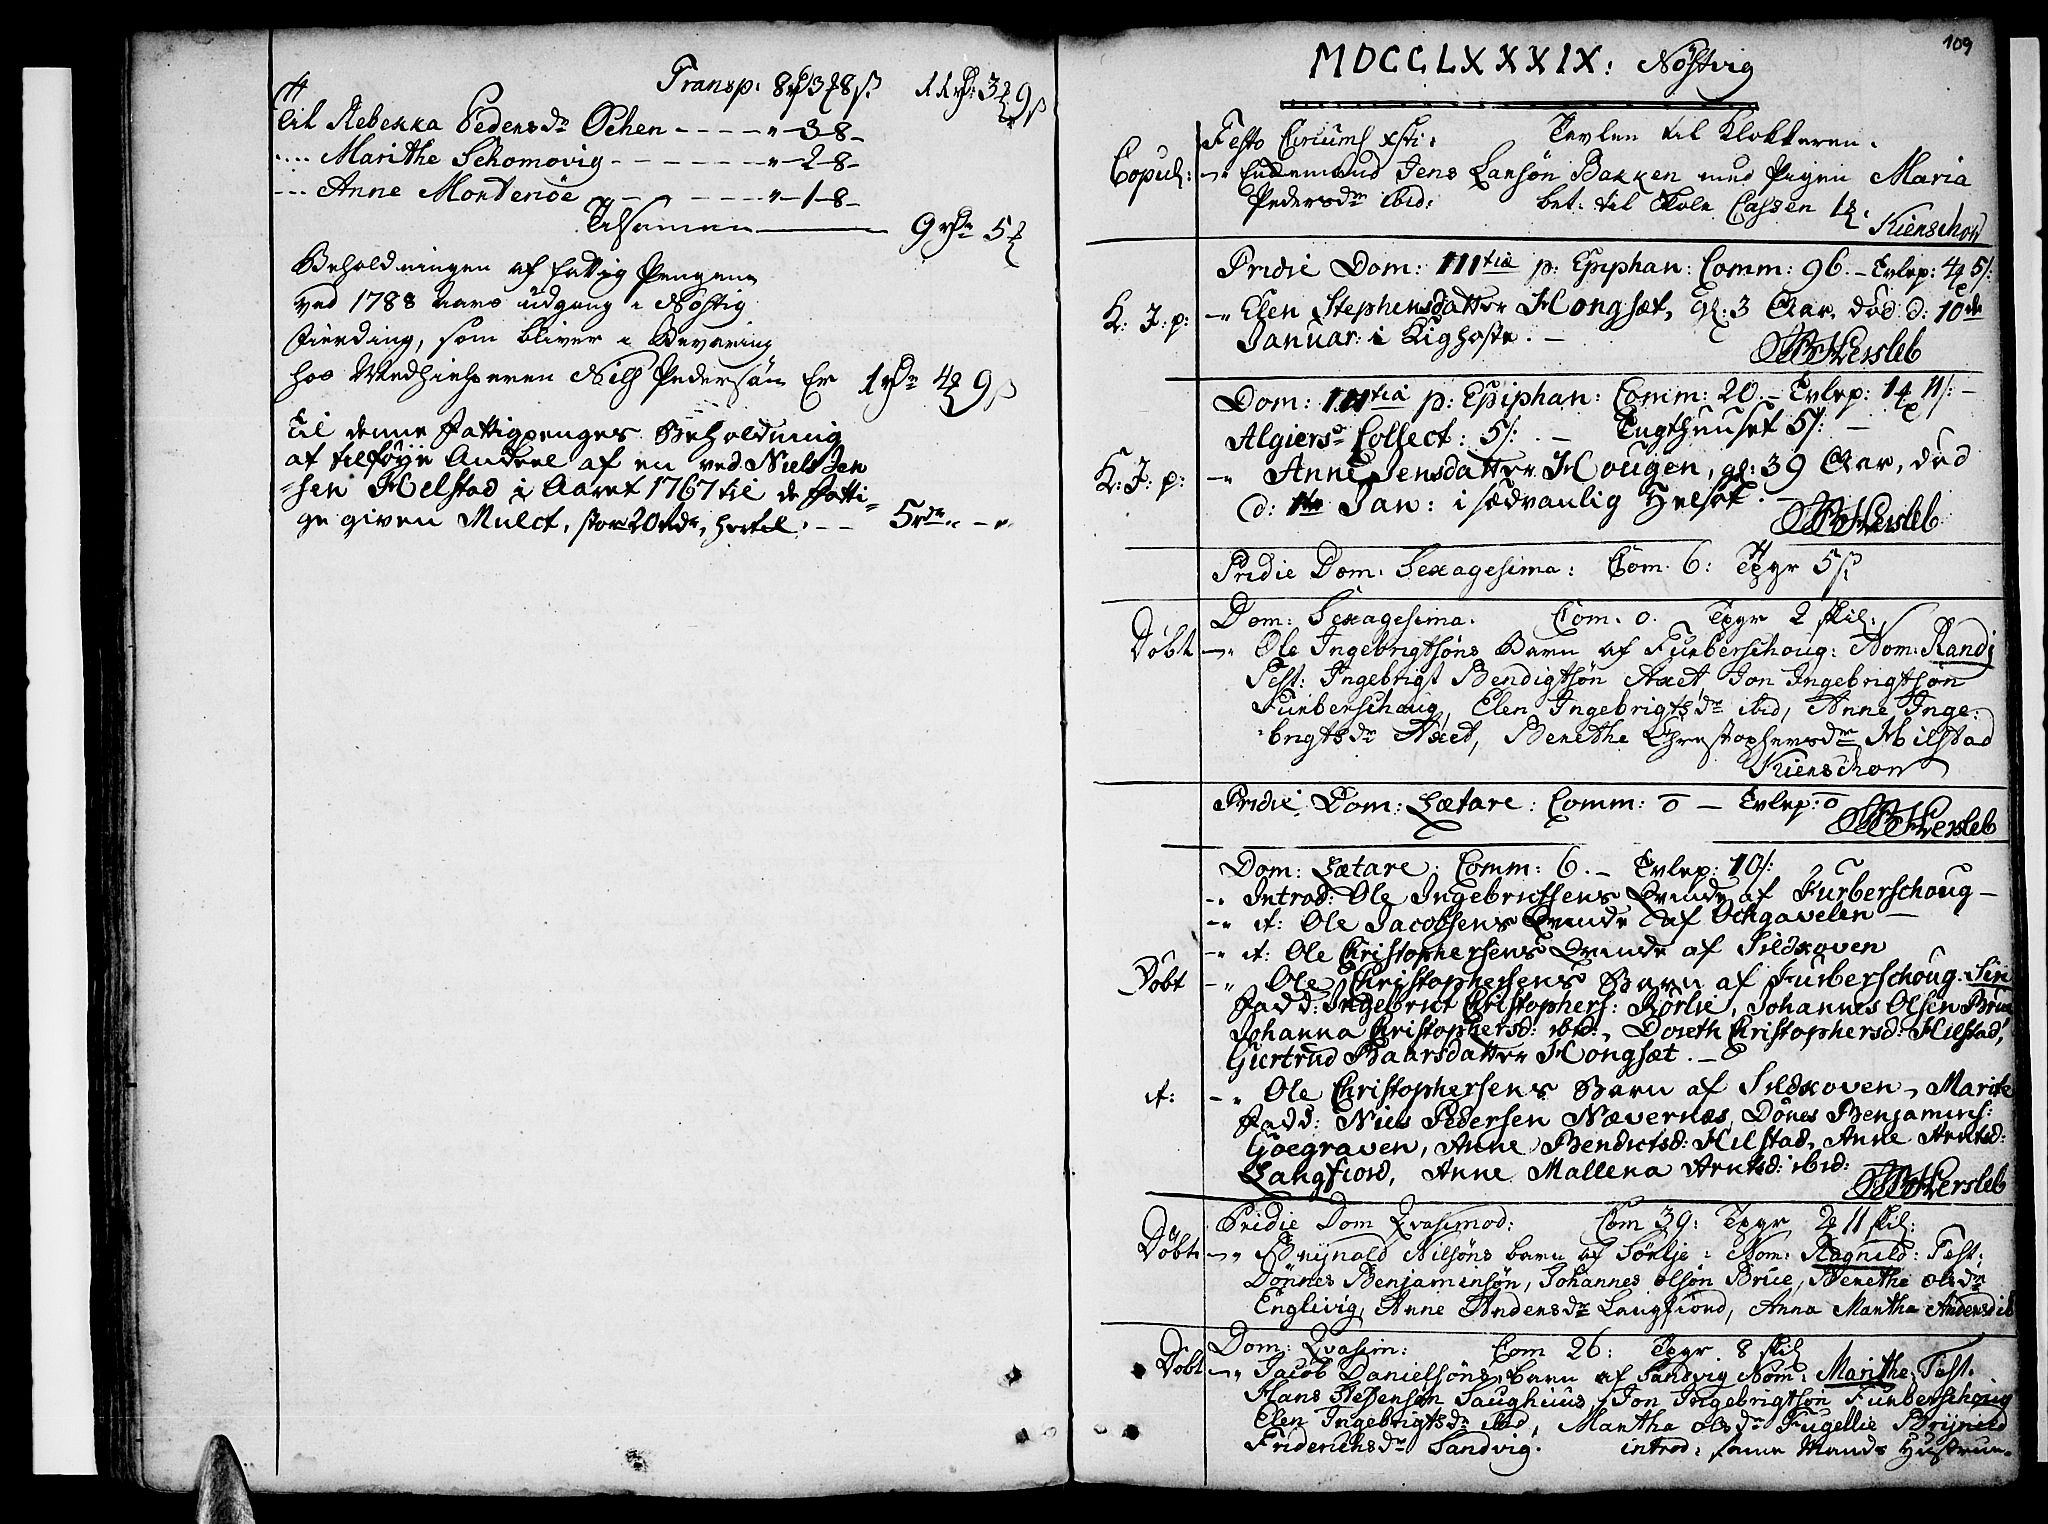 Transp: 8 rd 3 8 s: 11 rd: 3 9 s
Til Rebekka Pedersdr Ochen - - - - " - 3 - 8 -
.... Marithe Schomovig - - - - - - " - 2 - 8 -
... Anne Mortenøe - - - - - " - 1 - 8 -
Tilsamen 9 rdr 5
Beholdningen af fattig Pengene
ved 1788 Aars udgang i Nøstig
Fierding, som bliver i Bevaring
hos Medhielperen Nils Pedersøn Er 1 rdr 4 9 s
Til denne Fattigpenges Beholdning
at tilføye Andeel af en ved Niels Jen
=sen Helstad i Aaret 1767 til de Fatti=
ge given Mulct, stor 20 rdr, hertil: - - 5 rdr " - "
109
MDCCLXXXIX: Nøstvig
Festo Circums Xsti: Tavlen til Klokkeren.
Copul: -" Jens Larsøn Bakken med Pigen Maria
Pedersdr ibid: bet: til Skole Cassen 1
Kienschow
Pridie Dom: IIItia p: Epiphan: Comm: 96. - Evlep: 4 5/:
K: J: p: -" Elen Stephensdatter Hongsæt, gl: 3 Aar, død d: 10de
Januar: i Kighoste. -
Hersleb
Dom: IIItia p: Epiphan: Comm: 20. - Evlep: 1 11/: -
Algiers Collect: 5/: . - Tugthuuset 5/: -
K: J: p: -" Anne Jensdatter Hougen, gl: 39 Aar, død
d: 1te Jan: i sædvanlig Helsot. -
Hersleb
Pridie Dom: Sexagesima: Com. 6: Tpgr 5 s
Dom: Sexagesima. Com. 0. Tpgr 2 skil:
Døbt -" Ole Ingebrigtsøns Barn af Furberschoug: Nom: Randi
Test: Ingebrigt Bendigtsøn Axet Jon Ingebrigtsøn
Furberschoug, Elen Ingebrigtsdr ibid, Anne Inge:
brigtsdr Axet, Berethe Christophersdr Hilstad
Kienschow
Pridie Dom: Lætare: Comm: 0 - Evlep: 0
Hersleb
Dom: Lætare: Comm: 6. - Evlep: 10/:
-" Introd: Ole Ingebrictsens Qvinde af Furberschoug -
-" it: Ole Jacobsens Qvinde af Ochgavelen -
-" it: Ole Christophersens Qvinde af Sildxoven
Døbt -" Ole Christophersens Barn af Furberschoug: Siri
Fadd: Ingebrict Christophers: Rørlie, Johannes Olsen Brue
Johanna Christophersd: ibid:, Doreth Christophersd: Hilstad,
Giertrud Baarsdatter Hongsæt. -
it: -" Ole Christophersens Barn af Sildxoven, Marite
Fadd: Niels Pedersen Nævernæs, Dønes Benjamins:
Goegraven, Anne Bendictsd: Hilstad, Anne Arntsd:
Langfiord, Anne Mallena Arntsd: ibid:
Hersleb
Pridie Dom Qvasimod: Com 39: Tpgr 2 11 skil:
Døbt -" Brynald Nilsøns barn af Sørlje: Nom: Ragnild: Test:
Dønnes Benjaminsøn, Johannes Olsøn Brue, Berethe olsdr
Englivig, Anne Andersdr Langfiord, Anna Martha Andersd ib
Dom: Qvasim: Com 26: Tpgr 8 skil
Døbt -" Jacob Danielsøns barn af Sandvig Nom: Marithe: Test:
Hans Saughuus, Jon Ingebrigtson Furberschoug
Elen Ingebrigtsdr ibid, Martha olsdr Fugellie Brynild
Friderichsdr Sandvig. introd: samme Mands Hustrue.